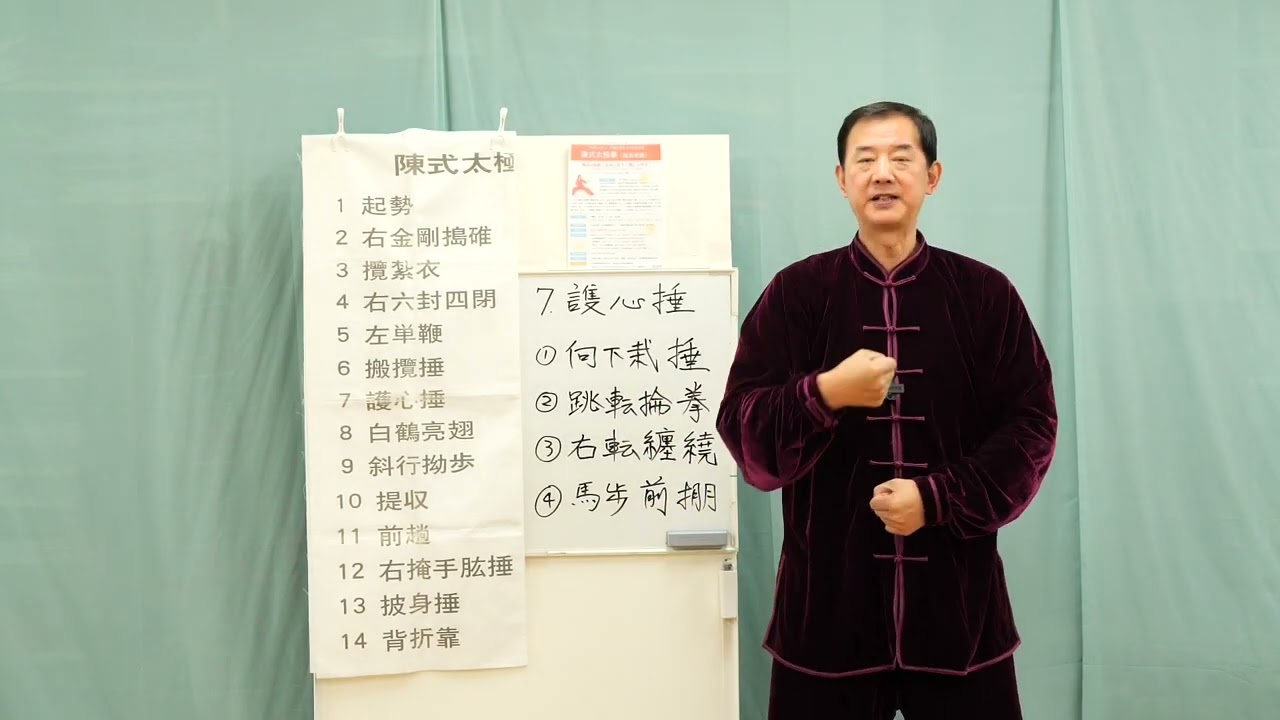 陳式太極
1 起勢
2 右金剛搗碓
3 攬紮衣
4 右六封四閉
5 左単鞭
6 搬攬捶
7 護心捶
8 白鶴亮翅
9 斜行拗歩
10 提収
11 前趟
12 右掩手肱捶
13 披身捶
14 背折靠
陳式太極拳
7. 護心捶
① 向下栽捶
② 跳転掄拳
③ 右転纏繞
④ 馬步前掤